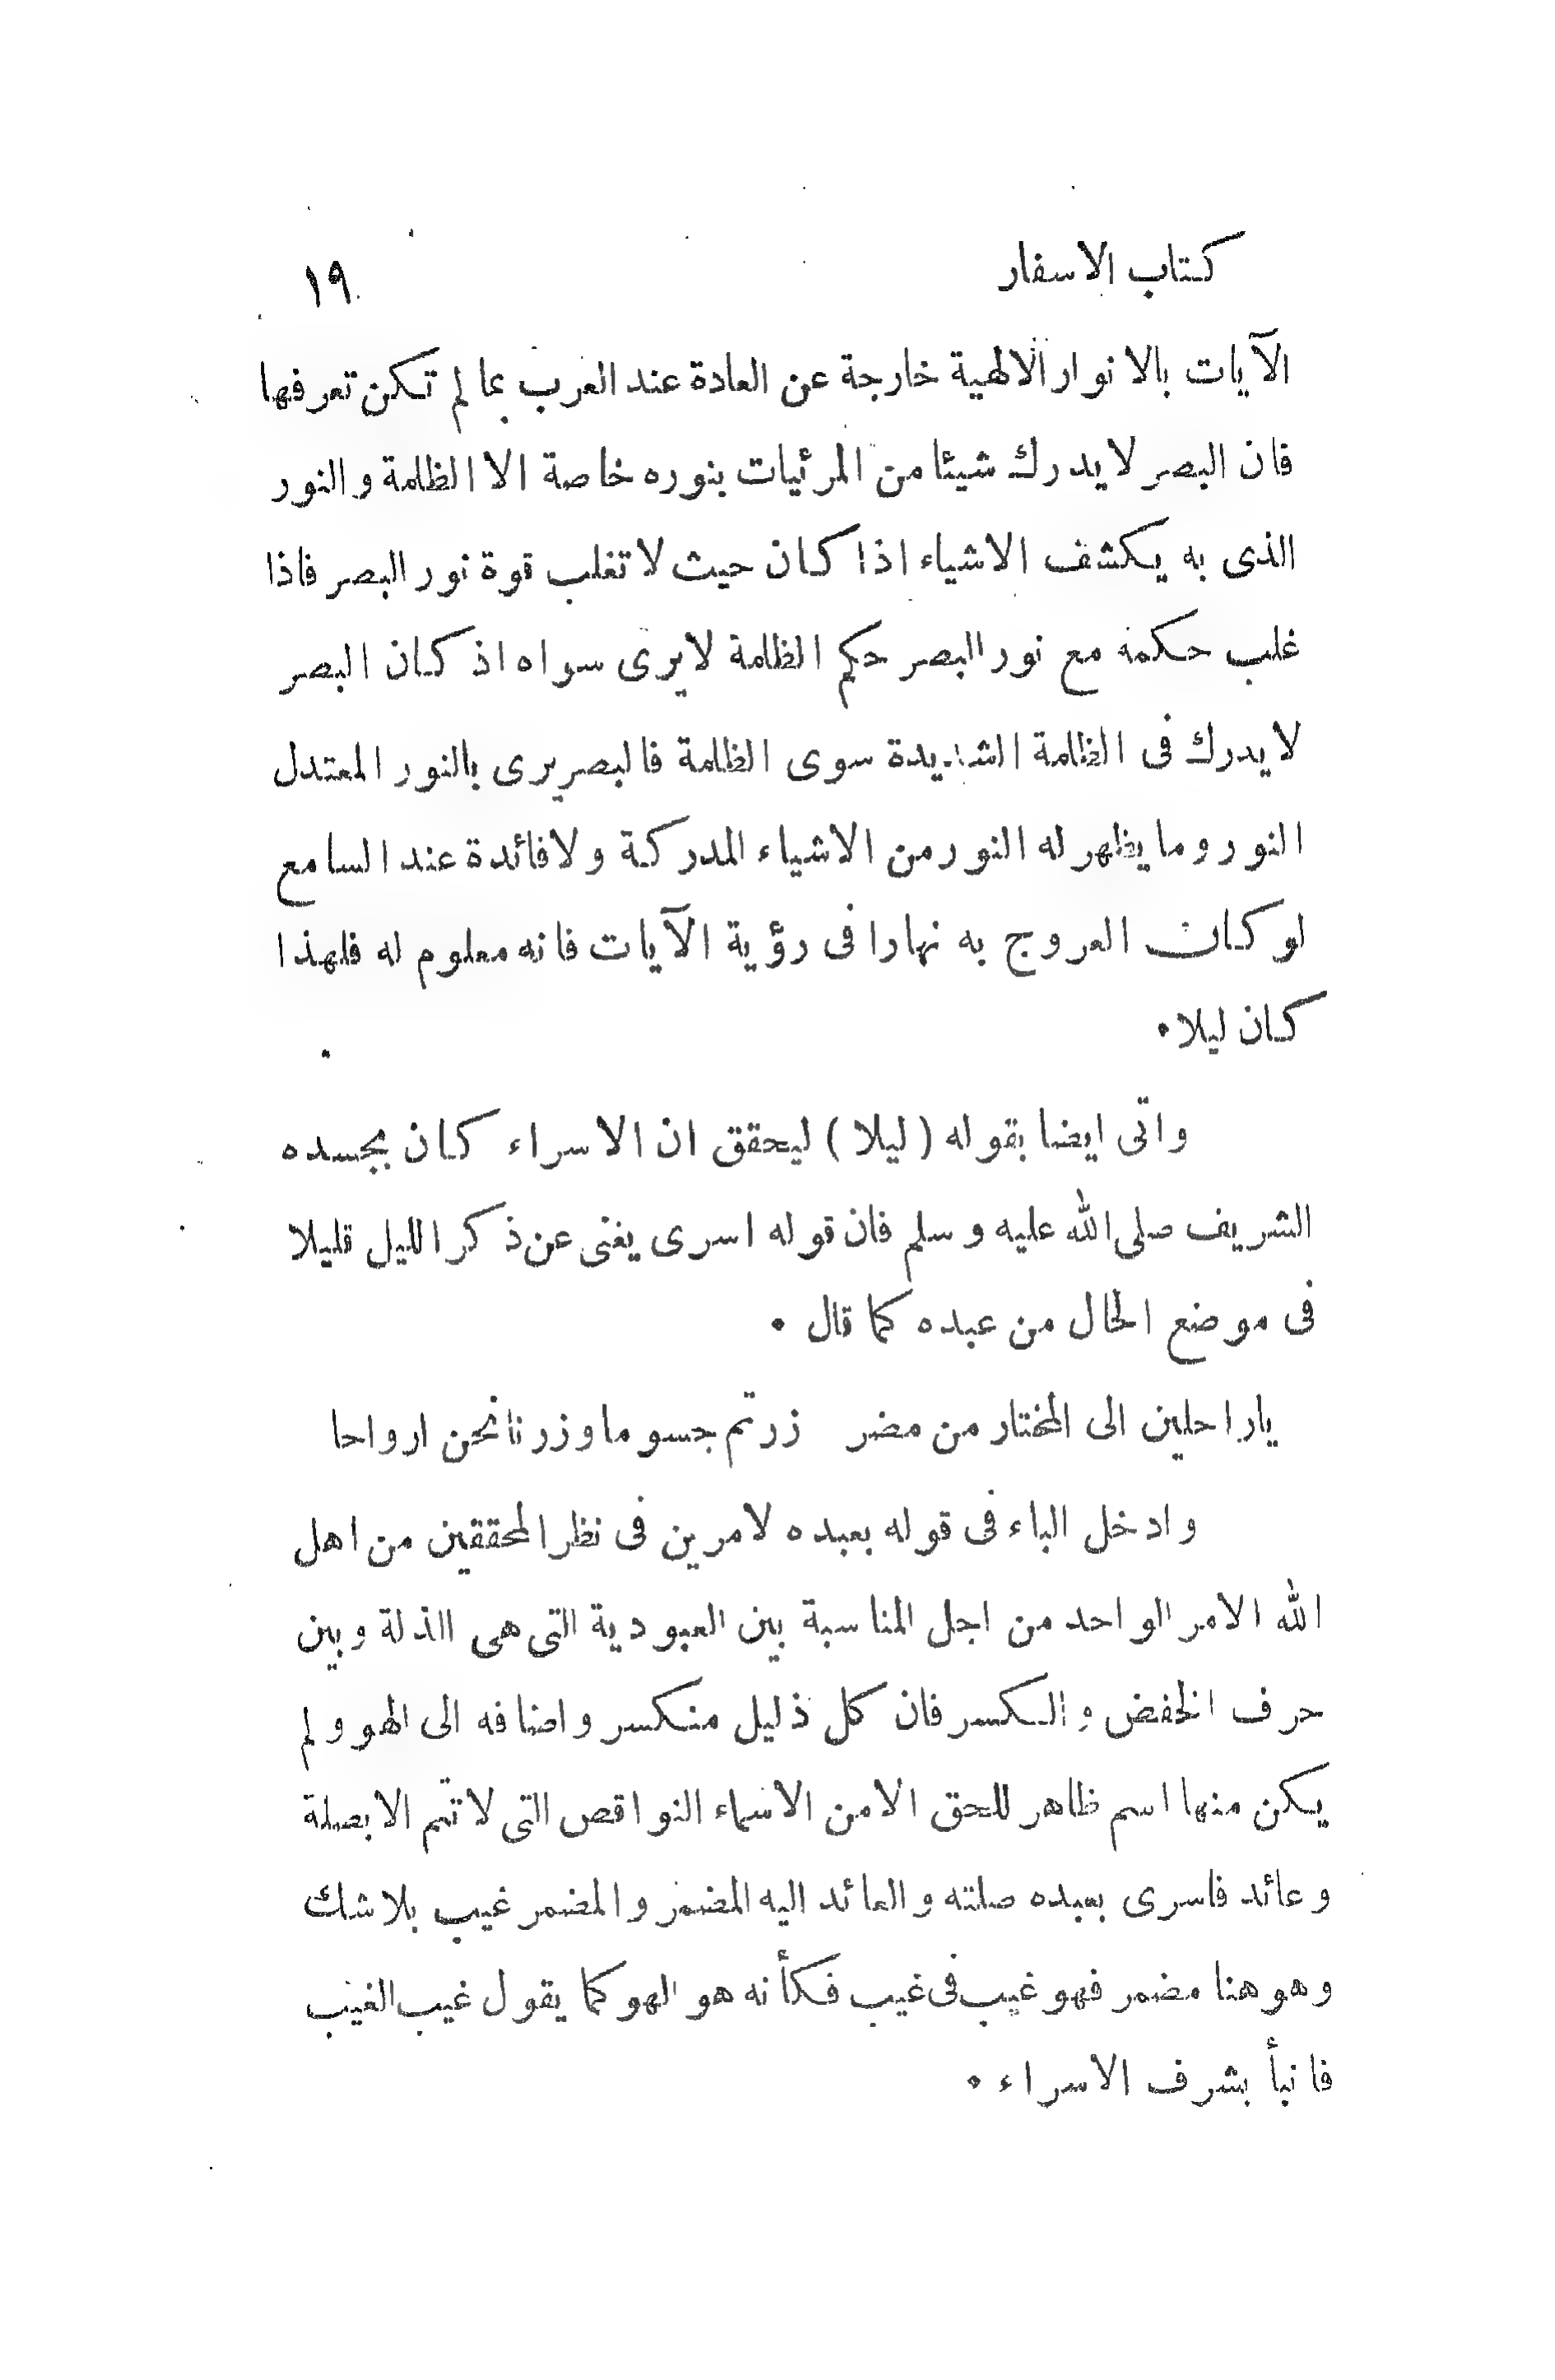 كتاب الاسفار ١٩
الآيات بالانوار الالهية خارجة عن العادة عند العرب بما لم تكن تعرفها
فان البصر لا يدرك شيئا من المرئيات بنوره خاصة الا الظلمة والنور
الذى به يكشف الاشياء اذا كان حيث لا تغلب قوة نور البصر فاذا
غلب حكمه مع نور البصر حكم الظلمة لا يرى سواه اذ كان البصر
لا يدرك فى الظلمة الشديدة سوى الظلمة فالبصر يرى بالنور المعتدل
النور وما يظهر له النور من الاشياء المدركة ولا فائدة عند السامع
لو كان العروج به نهارا فى رؤية الآيات فانه معلوم له فلهذا
كان ليلا.
واتى ايضا بقوله (ليلا) ليحقق ان الاسراء كان بجسده
الشريف صلى الله عليه وسلم فان قوله اسرى يغنى عن ذكر الليل قليلا
فى موضع الحال من عبده كما قال.
يا راحلين الى المختار من مضر زرتم جسوما وزرنا نحن ارواحا
وادخل الباء فى قوله بعبده لامرين فى نظر المحققين من اهل
الله الامر الواحد من اجل المناسبة بين العبودية التى هى الذلة وبين
حرف الخفض والكسر فان كل ذليل منكسر واضافه الى الهو ولم
يكن منها اسم ظاهر للحق الا من الاسماء النواقص التى لا تتم الا بصلة
وعائد فاسرى بعبده صلته والعائد اليه المضمر والمضمر غيب بلا شك
وهو هنا مضمر فهو غيب فى غيب فكأنه هو الهو كما يقول غيب الغيب
فانبأ بشرف الاسراء.